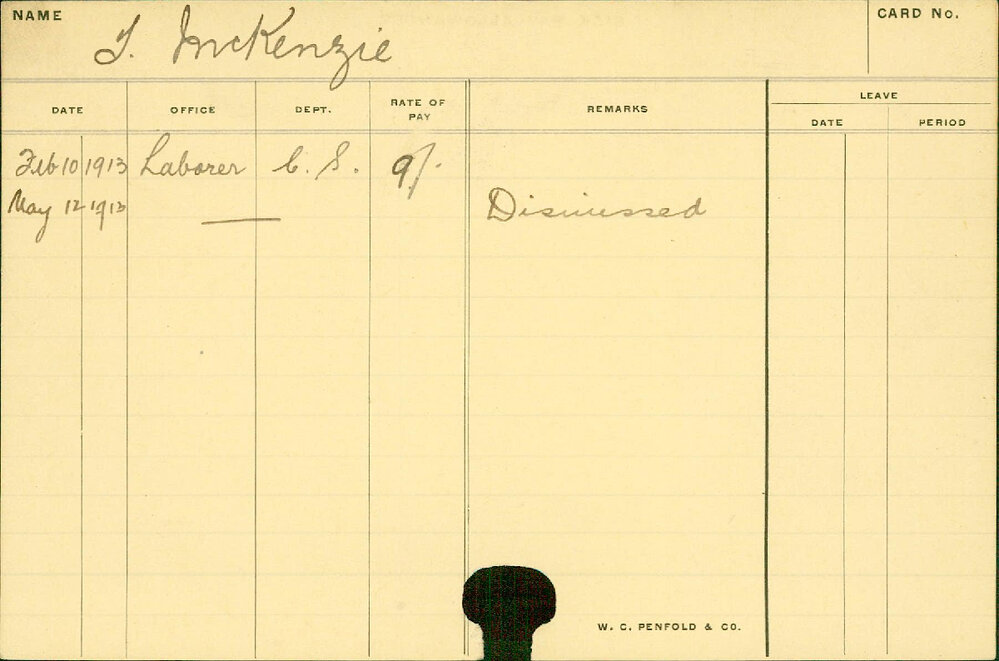 NAME
J. McKenzie
CARD No.
DATE
OFFICE
DEPT.
RATE OF PAY
REMARKS
LEAVE
DATE
PERIOD
Feb 10 1913 Laborer C. S. 9/-
May 12 1913 — Dismissed
W. C. PENFOLD & CO.